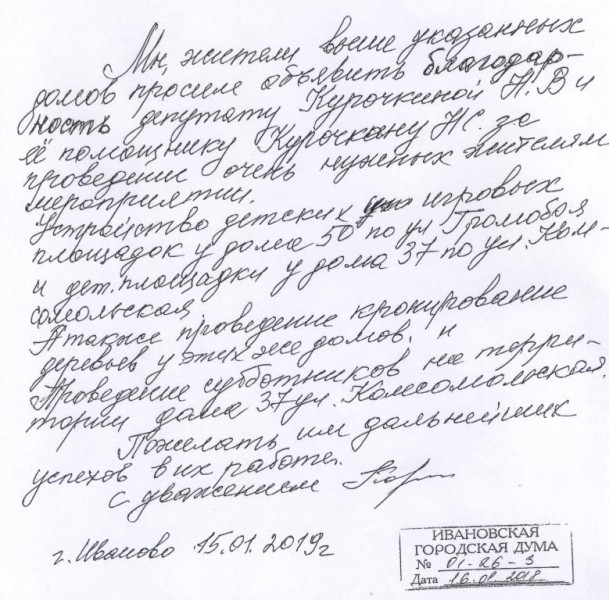 Мы, жители выше указанных
домов просим объявить благодар-
ность депутату Курочкиной Н.В и
её помощнику Курочкину Н.С. за
проведение очень нужных жителям
мероприятии.
Устройство детских игровых
площадок у дома 50 по ул Громобоя
и дет. площадки у дома 37 по ул. Ком-
сомольская
А также проведение кронирование
деревьев у этих же домов. и
Проведение субботников на терри-
тории дома 37 ул. Комсомольская.
Пожелать им дальнейших
успехов в их работе.
С уважением
г. Иваново 15.01.2019г
ИВАНОВСКАЯ
ГОРОДСКАЯ ДУМА
№ 01-26-3
Дата 16.01.